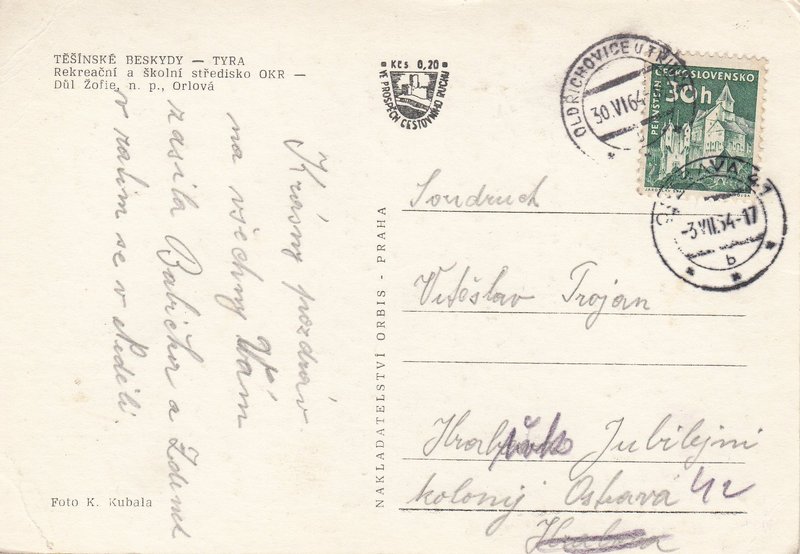 TĚŠÍNSKÉ BESKYDY — TYRA
Rekreační a školní středisko OKR —
Důl Žofie, n. p., Orlová
Kčs 0,20
VE PROSPĚCH CESTOVNÍHO RUCHU
OLDŘICHOVICE U TŘINCE
30.VI.64
ČESKOSLOVENSKO
30h
PERNŠTEJN
OSTRAVA 41
-3.VII.64-17
b
Krásný pozdrav
na všechny Vám
zasílá Babička a Zdena
v našim se v Neděli.
NAKLADATELSTVÍ ORBIS - PRAHA
Soudruh
Vítěslav Trojan
Hrabůvka Jubilejní
kolonij Ostravá 42
Foto K. Kubala